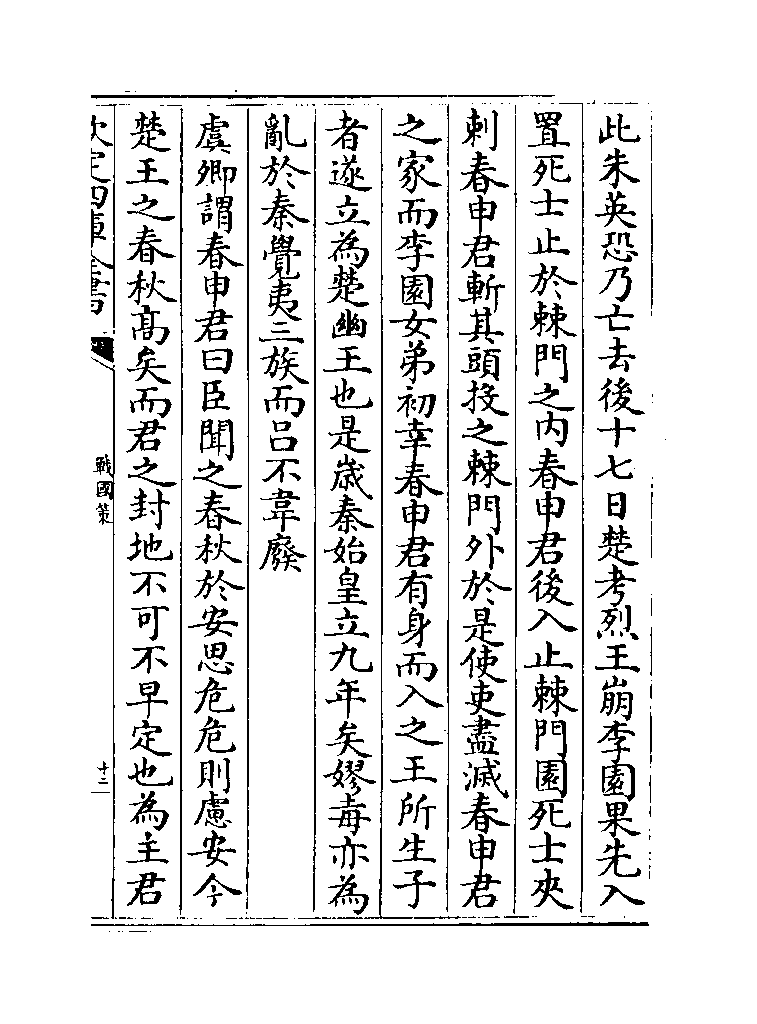 此朱英恐乃亡去後十七日楚考烈王崩李園果先入
置死士止於棘門之内春申君後入止棘門園死士夾
刺春申君斬其頭投之棘門外於是使吏盡滅春申君
之家而李園女弟初幸春申君有身而入之王所生子
者遂立為楚幽王也是嵗秦始皇立九年矣嫪毐亦為
亂於秦覺夷三族而吕不韋廢
虞卿謂春申君曰臣聞之春秋於安思危危則慮安今
楚王之春秋髙矣而君之封地不可不早定也為主君
欽定四庫全書
戰國策
十二